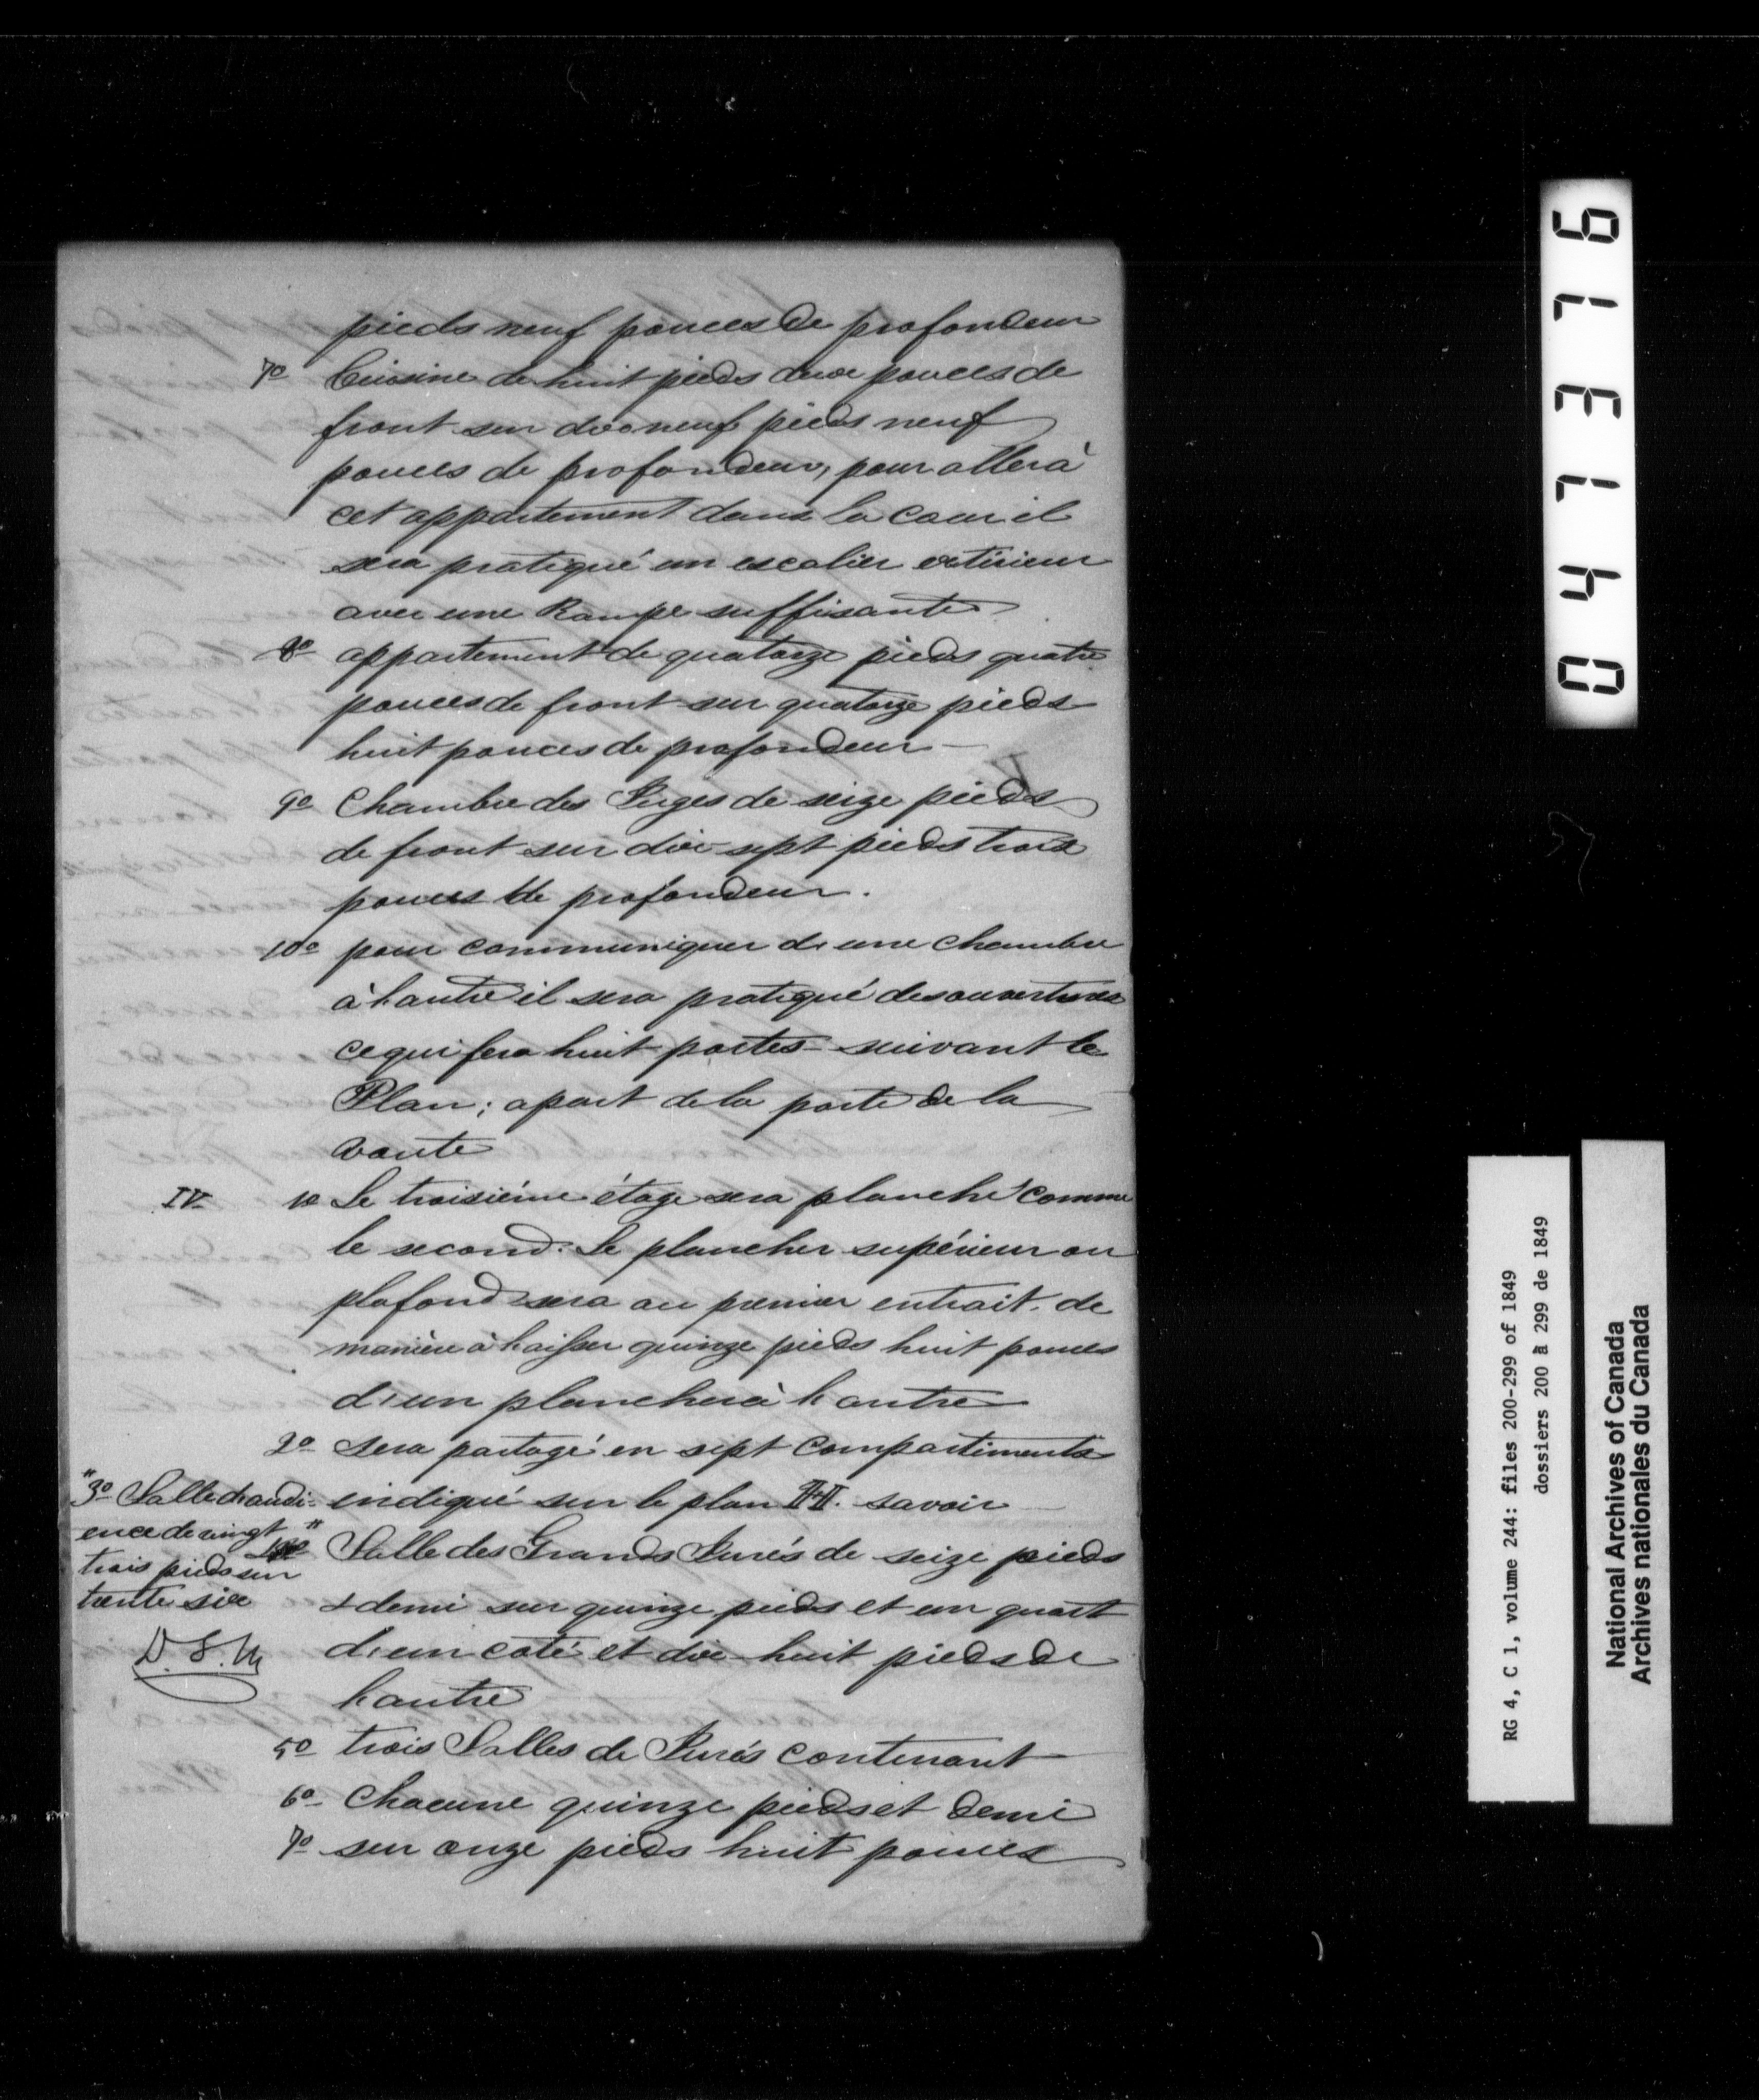 pieds neuf pouces de profondeur
7o Cuisine de huit pieds deux pouces de
front sur dix neuf pieds neuf
pouces de profondeur, pour aller à
cet appartement dans la cour il
sera pratiqué un escalier extérieur
avec une Rampe suffisante
8o appartement de quatorze pieds quatre
pouces de front sur quatorze pieds
huit pouces de profondeur —
9o Chambre des Juges de seize pieds
de front sur dix-sept pieds trois
pouces de profondeur.
10o pour communiquer d'une chambre
à l'autre il sera pratiqué des ouvertures
ce qui fera huit portes suivant le
Plan; apart de la porte de la
voute
IV. 1o Le troisième étage sera planché comme
le second. Le plancher supérieur ou
plafond sera au premier entrait. de
manière à laisser quinze pieds huit pouces
d'un plancher à l'autre
2o Sera partagé en sept Compartiments
indiqué sur le plan II. savoir
"3o Salle d'audi-
ence de vingt
trois pieds sur
trente six"
D. S. M
Salle des Grands Jurés de seize pieds
& demi sur quinze pieds et un quart
d'un coté et dix-huit pieds de
l'autre
5o trois Salles de Jurés contenant
6o Chacune quinze pieds et demi
7o sur onze pieds huit pouces
047376
RG 4, C 1, volume 244: files 200-299 of 1849
dossiers 200 à 299 de 1849
National Archives of Canada
Archives nationales du Canada